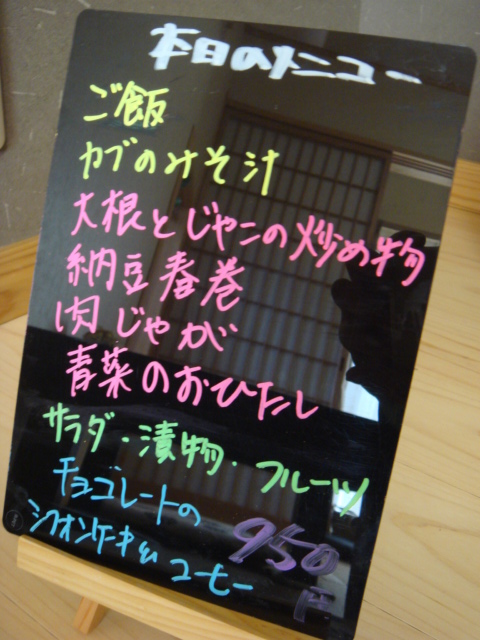 本日のメニュー
ご飯
カブのみそ汁
大根とじゃこの炒め物
納豆春巻
肉じゃが
青菜のおひたし
サラダ・漬物・フルーツ
チョコレートの
シフォンケーキ&コーヒー
950円